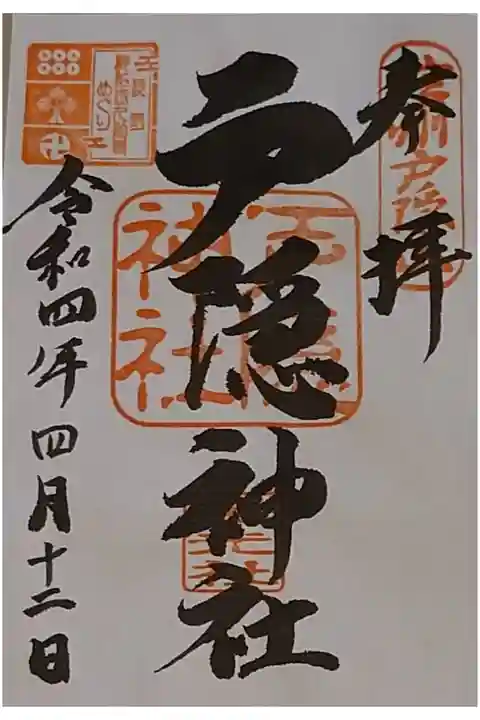 参拝
戸隠神社
令和四年四月十二日
戸隠
神社
めぐり